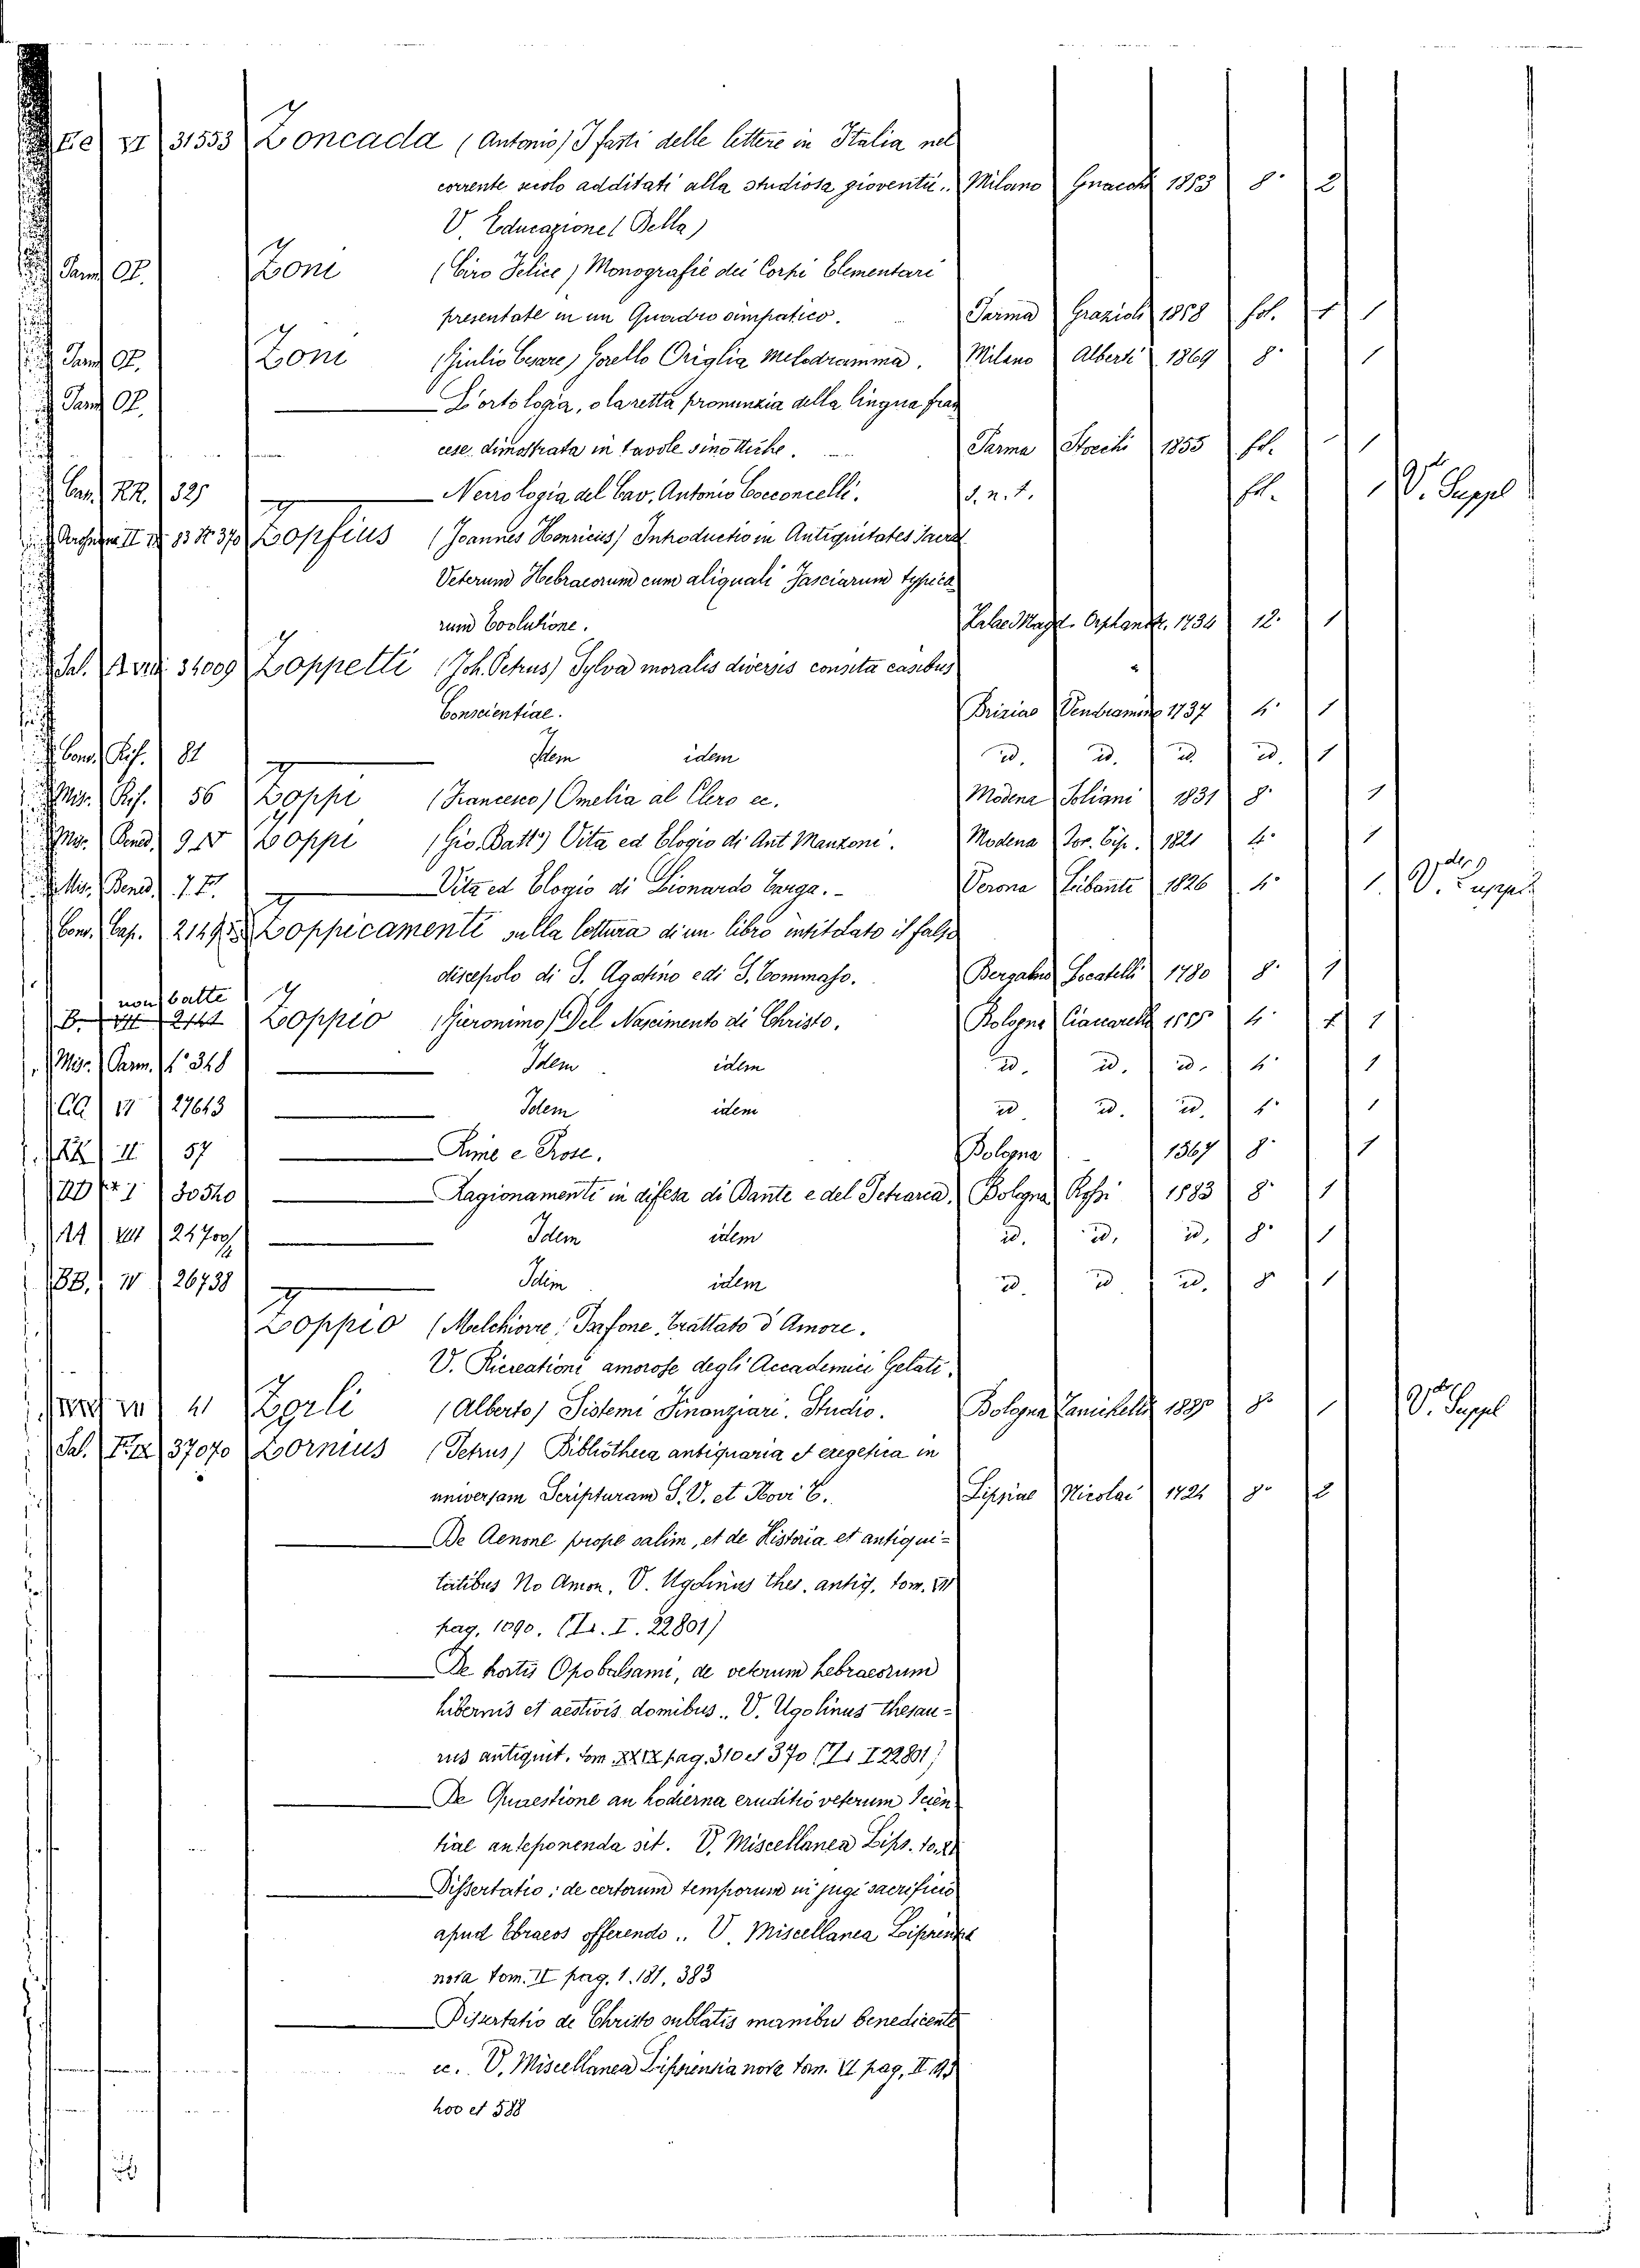 Ee VI 31553 Zoncada (Antonio) I fasti delle lettere in Italia nel
corrente secolo additati alla studiosa gioventù.. Milano Gnocchi 1853 8° 2
V. Educazione (Della)
Parm OP. Zoni (Ciro Felice) Monografie dei Corpi Elementari
presentate in un Quadro simpatico. Parma Grazioli 1858 fol. 1 1
Parm OP. Zoni (Giulio Cesare) Gorello Origlia Melodramma. Milano Alberti 1869 8° 1
Parm OP. L'ortologia, o la retta pronunzia della lingua fran
cese dimostrata in tavole sinottiche. Parma Stocchi 1855 fol. 1
RR. 325 Necrologia del Cav. Antonio Cocconcelli. S. n. t. fol. V. Suppl
Zopfius (Joannes Henricus) Introductio in Antiquitates Sacras
Veterum Hebraeorum cum aliquali Fasciarum typica
rum Evolutione. Halae Magd. Orphanotr. 1734 12. 1
Sal. 34009 Zoppelli (Joh. Petrus) Sylva moralis diversis consita casibus
Conscientiae. Brixiae Vendramino 1737 4° 1
Rif. 81 Idem idem id. id. id. id. 1
Mis. Rif. 56 Zoppi (Francesco) Omelia al Clero ec. Modena Soliani 1831 8° 1
Mis. Bened. 9 IV Zoppi (Gio. Batt.) Vita ed Elogio di Ant Manzoni. Modena Tor. Tip. 1821 4° 1
Mis. Bened. Vita ed Elogio di Lionardo Targa. - Verona Libanti 1826 4° 1 V. Suppl
Cap. Zoppicamenti sulla lettura di un libro intitolato il falso
discepolo di S. Agostino e di S. Tommaso. Bergamo Locatelli 1780 8° 1
non batte
B. 2141 Zoppio (Gieronimo) Del Nascimento di Christo. Bologna 4° 1 1
Mis. Parm. f° 348 Idem idem id. id. id. 4° 1
CC 17 27643 Idem idem id id. id. 4° 1
II 57 Rime e Prose. Bologna 1567 8° 1
30540 Ragionamenti in difesa di Dante e del Petrarca. Bologna Rossi 1583 8° 1
VIII 24700 Idem idem id. id. id. 8° 1
BB. IV 26738 Idem idem id. id id. 8° 1
Zoppio (Melchiorre) Psafone, Trattato d'Amore.
V. Ricreationi amorose degli Accademici Gelati.
41 Zorli (Alberto) Sistemi Finanziari. Studio. Bologna Zanichelli 1890 8° 1 V. Suppl
Sal. 37070 Zornius (Petrus) Bibliotheca antiquaria et exegetica in
universam Scripturam S. V. et Novi T. Lipsiae Nicolai 1724 8° 2
De Aenone prope salim, et de Historia et antiqui-
tatibus No Amon. V. Ugolinus thes. antiq. tom. VII
pag. 1090. ( I. 22801)
De hortis Opobalsami, de veterum hebraeorum
hibernis et aestivis domibus.. V. Ugolinus thesau-
rus antiquit. tom XXIX pag. 310 et 370 ( I 22801)
De Quaestione an hodierna eruditio veterum scien
tiae anteponenda sit. V. Miscellanea Lips. to. XI
Dissertatio: de certorum temporum in jugi sacrificio
apud Ebraeos offerendo.. V. Miscellanea Lipsiensia
nova tom. II pag. 1. 181, 383
Dissertatio de Christo sublatis manibus benedicente
ec. V. Miscellanea Lipsiensia nova tom. VI pag. II 193
400 et 588